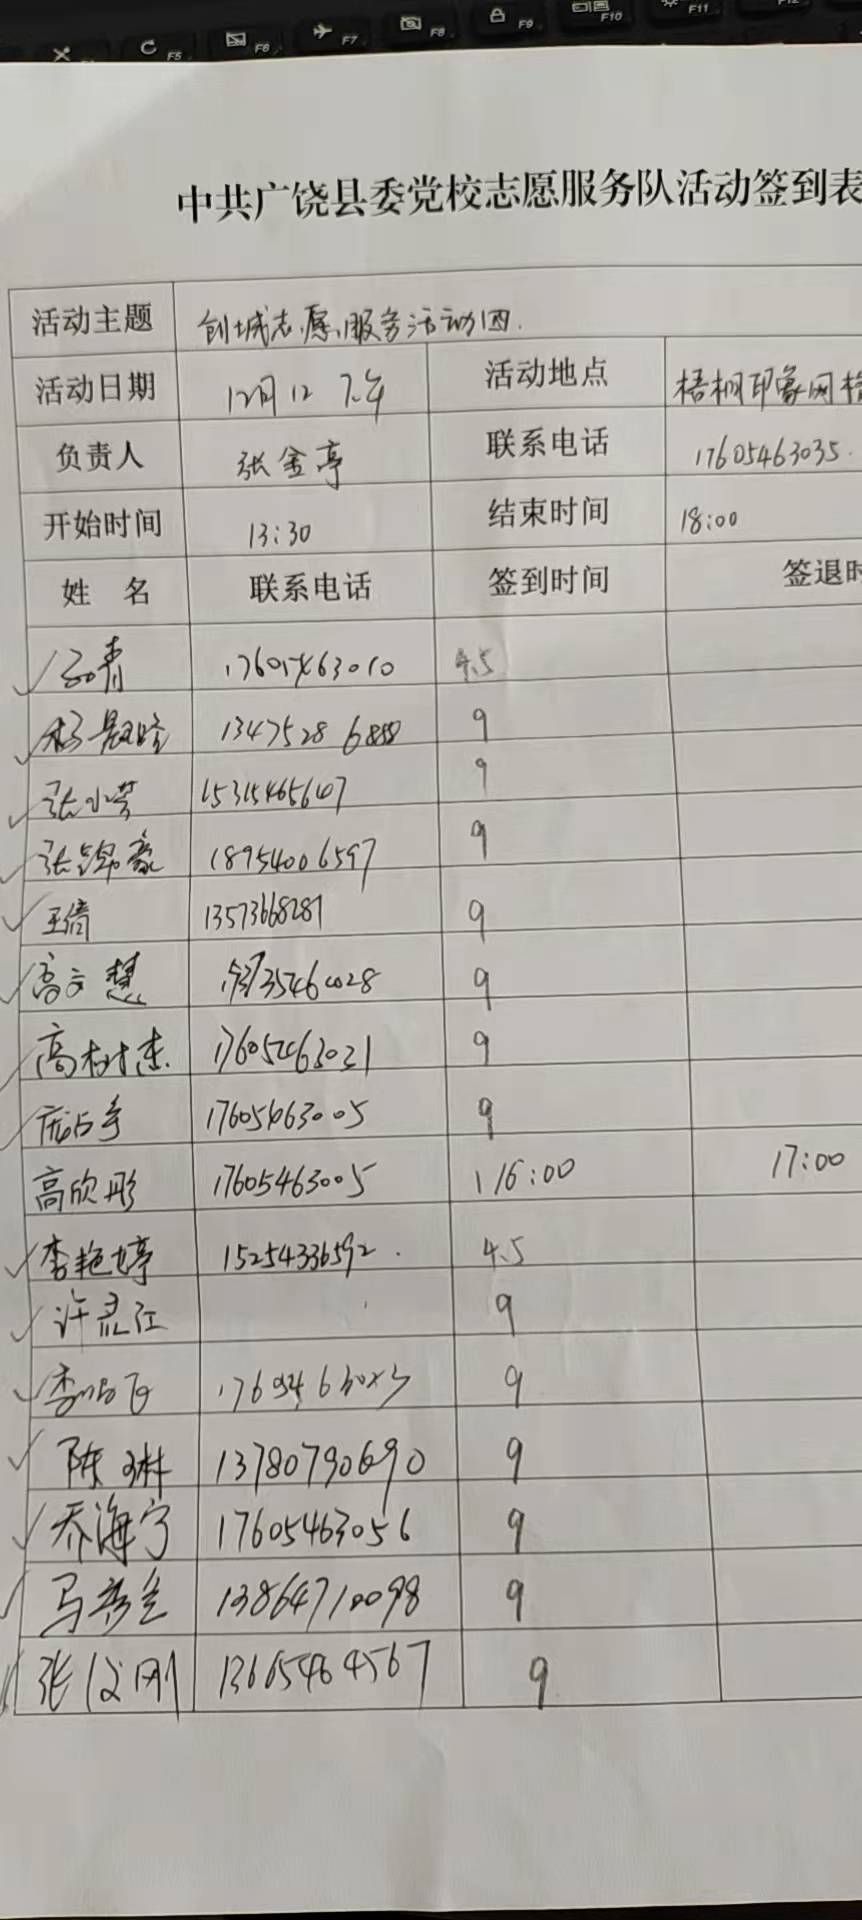 F5 F6 F7 F8 F9 F10 F11 F12
中共广饶县委党校志愿服务队活动签到表
活动主题 创城志愿服务活动四.
活动日期 12月12 下午 活动地点 梧桐印象网格
负责人 张金亭 联系电话 17605463035.
开始时间 13:30 结束时间 18:00
姓 名 联系电话 签到时间 签退时
17605463010 4.5
13475286888 9
张小芳 15315465607 9
张锦豪 18954006597 9
王倩 13573668281 9
高文慧 9
高树杰 17605463031 9
17605463005 9
高欣彤 17605463005 16:00 17:00
李艳婷 15254336592. 4.5
许灵江 9
9
陈琳 13780790690 9
乔海宁 17605463056 9
马秀兰 13864710098 9
张俊刚 13665464567 9